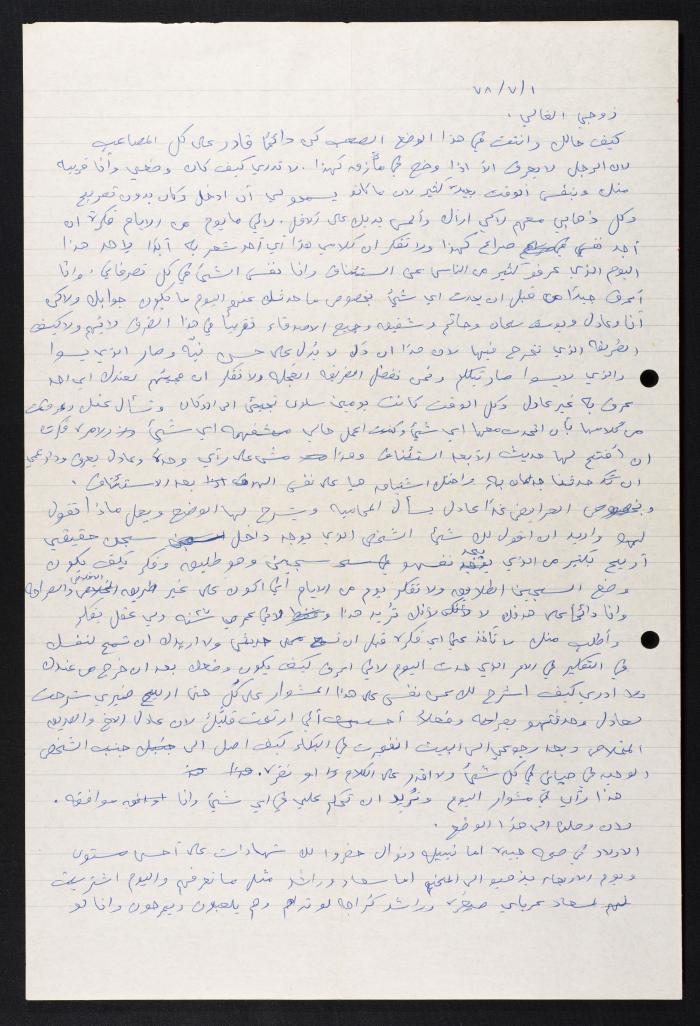 ٧٨/٧/١
زوجي الغالي .
كيف حالك وانت في هذا الوضع الصعب كن دائمًا قادر على كل المصاعب
لان الرجل لا يعرف الا اذا وضع في مأزق كهذا . لا تدري كيف كان وضعي وأنا قريبه
منك وبنفس الوقت بعيده كثير لان ما كانو يسمحو لي أن ادخل وكان بدون تصريح
وكل ذهابي معهم لاكي اراك وألمس يديك على الاقل . لاني ما يوم من الايام فكرت ان
أجد نفسي في صراع كهذا ولا تفكر ان كلامي هذا أي أحد شعر به أبدًا لاحد هذا
اليوم الذي عرفو كثير من الناس عن الستئناف وانا نفس الشيئ في كل تصرفاتي ، وانا
أعرف جيدًا من قبل ان يحدث اي شيئ بخصوص ما حدثتك عنهم اليوم ما يكون جوابك ولاكن
أنا وعادل ويوسف سمعان وحاتم وشفيقه وجميع الاصدقاء تقريبًا في هذا الطرق لايهم ولا كيف
الطريقه الذي تخرج فيها لان هذا ان دل لا يدل على حسن نيّه وصار الذي يسوا
والذي لا يسوا صار يتكلم ونحن نفضل الطريقه الفعله ولا تفكر ان مجيئهم لعندك اي احد
عرف به غير عادل وكل الوقت كانت يوميًا سلوى تجيئ الى الدوكان وتسأل عنك وعرفت
من كلامها بأن اتحدث معها اي شيئ وكنت اعمل حالي مشفيهه اي شيئ ولامره فكرت
ان أفتح لها حديث الا بعد استئناف وهذا مشى على رأي وحده وعادل يعرف ودار عمي
ان تكلم حدثنا جدعان به وأخذك اشياءه هيا على نفس الهدف بعد الاستئناف .
وبخصوص العرايض غدًا عادل يسأل المحاميه ويشرح لها الوضع ويعمل ماذا تقول
لهو واريد ان اقول لك شيئ الشخص الذي يوجد داخل سجن حقيقي
أريح بكثير من الذي يجد نفسهو في سجيني وهو طليق وفكر كيف يكون
وضع السجين الطليق ولا تفكر يوم من الايام أني اكون على غير الطريقه الاخلاص والصراحه
وانا دائمًا على هدفك لا لأنك تريد هذا لاني عمري ٣٤ سنه ولي عقل يفكر
وأطلب منك لا تأخذ عني اي فكره قبل ان تسمع حديثي ولا اريدك ان تسمح لنفسك
في التفكير في الامر الذي حدث اليوم لاني اعرف كيف يكون وضعك بعد ان خرج من عندك
ولا ادري كيف اشرح لك عن نفسي على هذا المشوار على كلٍ حتى اريح ضميري شرحت
لعادل وحدثتهو بصراحه وفعلاً أحسيت أني ارتحت قليلاً لان عادل الاخ والصديق
المخلص وبعد رجوعي الى البيت انفجرت في البكاء كيف اصل الى جنب الشخص
الوحيد في حياتي في كل شيئ ولا اقدر على الكلام لا او نفره .
هذا رأي في مشوار اليوم وتريد ان تحكم علي في اي شيئ وانا موافقه .
ولان وصلنا الى هذا الوضع .
الاولاد في صحه جيده اما نبيل ونوال حضروا لك شهادات على أحسن مستوى
ويوم الاربعاء يذهبو الى المخيم اما سعاد وراشد مثل ما تعرفهم واليوم اشتريت
لسعاد عرباي صغيره وراشد كراجه لو تراهم وهم يلعبون ويمرحون وانا لو